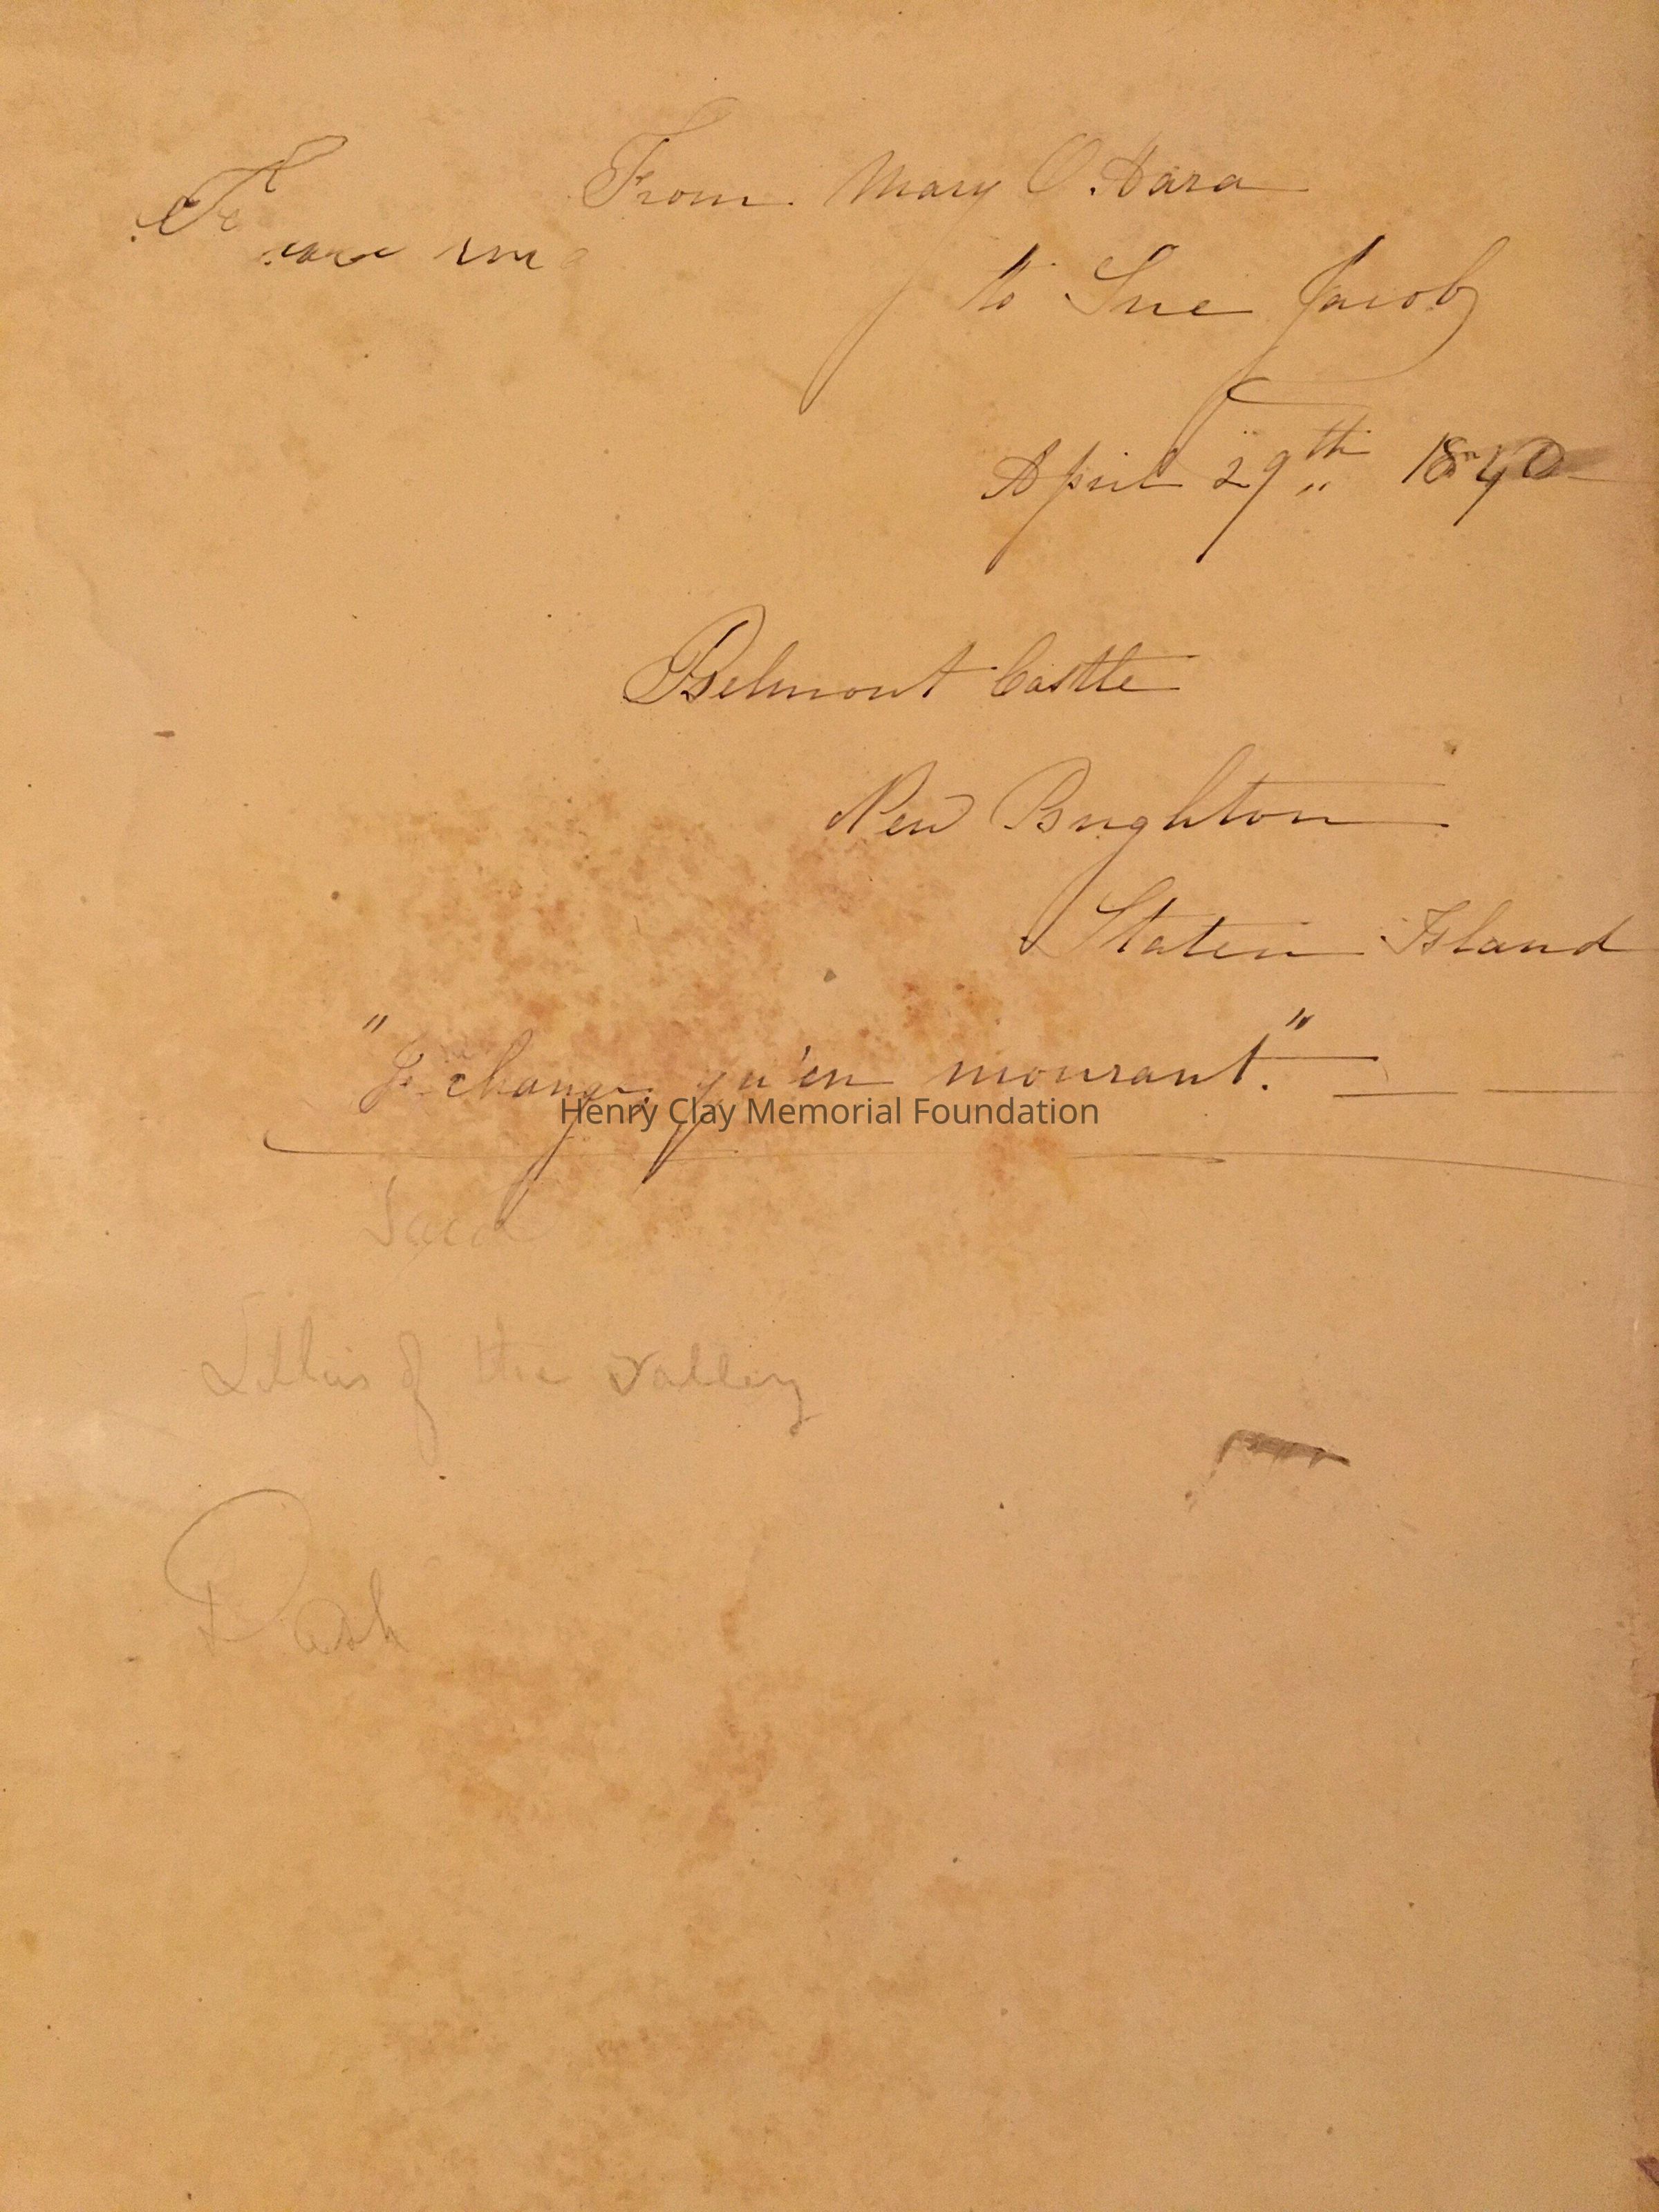 From Mary O.Hara
to Sue Jacob
April 29th
Belmont Castle
New Brighton
Staten Island
"Je change qu'en mourant."
Henry Clay Memorial Foundation
Lillies of the valley
Dash